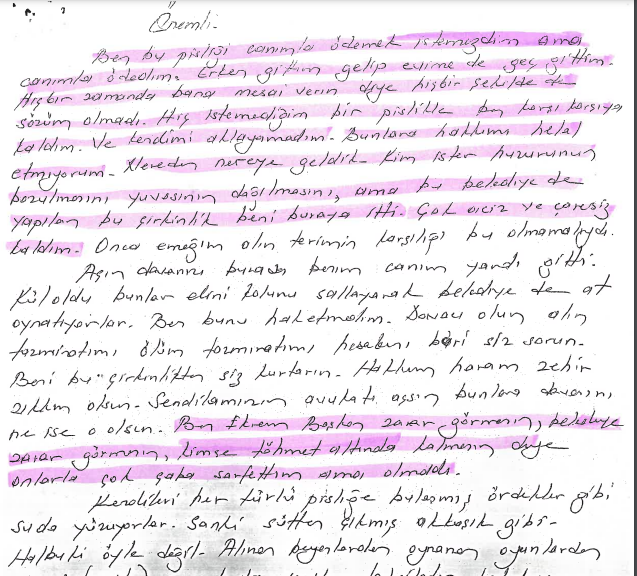 Önemli.
Ben bu pisliği canımla ödemek istemezdim ama
canımla ödedim. Erken gittim gelip evime de geç gittim.
Hiçbir zamanda bana mesai verin diye hiçbir şekilde de
sözüm olmadı. Hiç istemediğim bir pislikle ben karşı karşıya
kaldım. Ve kendimi aklayamadım. Bunlara hakkımı helal
etmiyorum. Nereden nereye geldik. Kim ister huzurunun
bozulmasını, yuvasının dağılmasını, ama bu belediye de
yapılan bu çirkinlik beni buraya itti. Çok aciz ve çaresiz
kaldım. Onca emeğim alın terimin karşılığı bu olmamalıydı.
Açın davanızı burada benim canım yandı gitti.
Kül oldu bunlar elini kolunu sallayarak belediye de at
oynatıyorlar. Ben bunu haketmedim. Davacı olun alın
tazminatımı, ölüm tazminatımı, hesabını bari siz sorun.
Beni bu çirkinlikten siz kurtarın. Hakkım haram zehir
zıkkım olsun. Sendikamızın avukatı açsın bunlara davasını,
ne ise o olsun. Ben Ekrem Başkan zarar görmesin, belediye
zarar görmesin, kimse töhmet altında kalmasın diye
onlarla çok çaba sarfettim ama olmadı.
Kendileri her türlü pisliğe bulaşmış ördekler gibi
suda yüzüyorlar. Sanki sütten çıkmış akkaşık gibi.
Halbuki öyle değil. Alınan beyenlerden oynanan oyunlardan